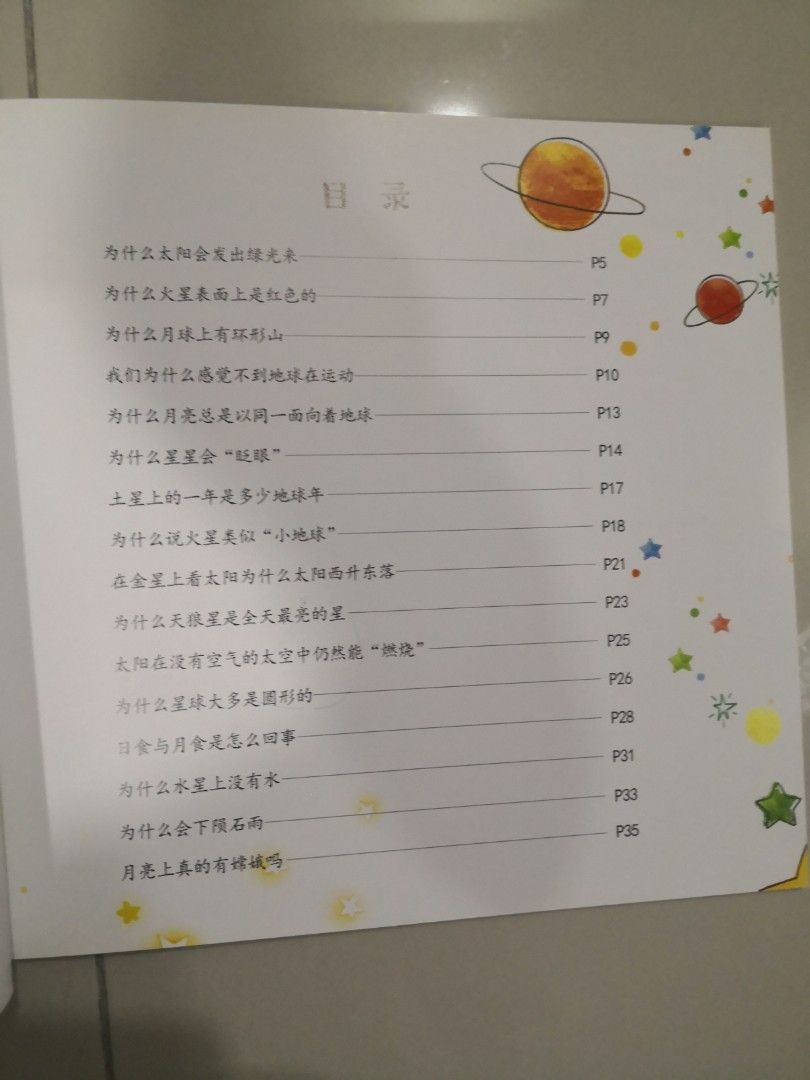 目 录
为什么太阳会发出绿光来 P5
为什么火星表面上是红色的 P7
为什么月球上有环形山 P9
我们为什么感觉不到地球在运动 P10
为什么月亮总是以同一面向着地球 P13
为什么星星会“眨眼” P14
土星上的一年是多少地球年 P17
为什么说火星类似“小地球” P18
在金星上看太阳为什么太阳西升东落 P21
为什么天狼星是全天最亮的星 P23
太阳在没有空气的太空中仍然能“燃烧” P25
为什么星球大多是圆形的 P26
日食与月食是怎么回事 P28
为什么水星上没有水 P31
为什么会下陨石雨 P33
月亮上真的有嫦娥吗 P35